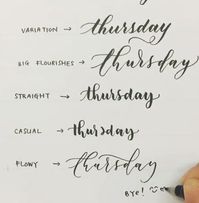 VARIATION → thursday
BIG FLOURISHES → thursday
STRAIGHT → thursday
CASUAL → thursday
FLOWY → thursday
BYE!